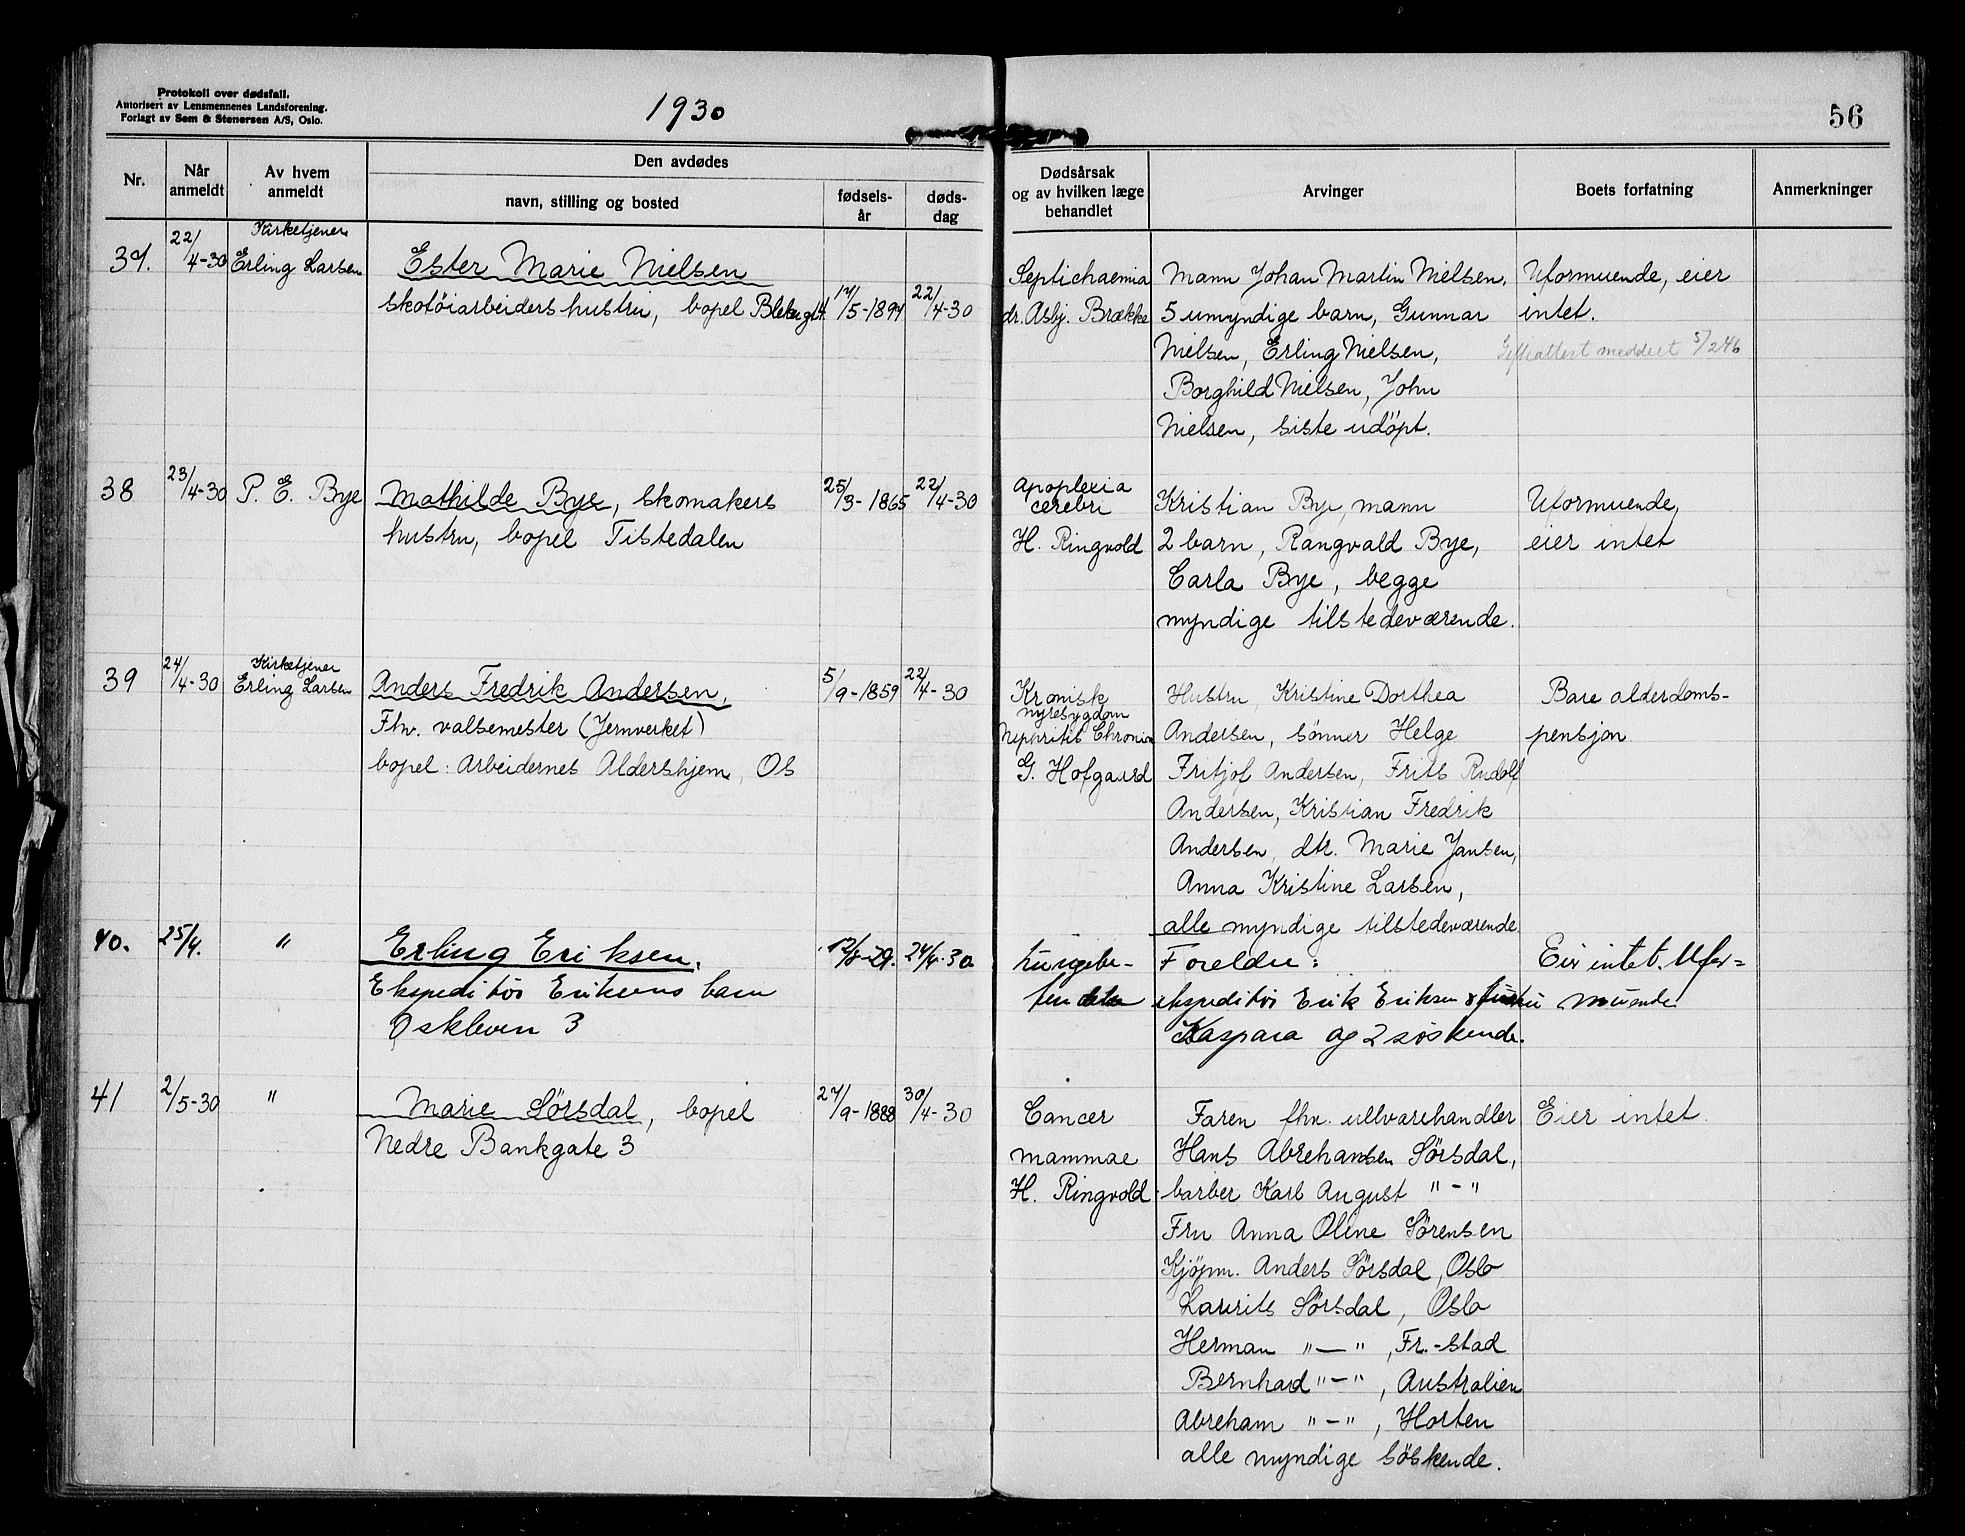 Protokoll over dødsfall.
Autorisert av Lensmennenes Landsforening.
Forlagt av Sem & Stenersen A/S, Oslo.
1930
56
Nr.
Når anmeldt
Av hvem anmeldt
Den avdødes
navn, stilling og bosted
fødsels-år
døds-dag
Dødsårsak og av hvilken læge behandlet
Arvinger
Boets forfatning
Anmerkninger
37. 22/4-30 Kirketjener Erling Larsen
Ester Marie Nielsen
skotöiarbeiders hustru, bopel
17/5-1894 22/4-30
Septichaemia
dr. Asbj. Brække
Mann Johan Martin Nielsen.
5 umyndige barn, Gunnar
Nielsen, Erling Nielsen,
Borghild Nielsen, John
Nielsen, siste udöpt.
Uformuende, eier
intet.
meddelt
38 23/4-30 P. E. Bye
Mathilde Bye, skomakers
hustru, bopel Tistedalen
25/3-1865 22/4-30
Apoplexia
cerebri
H. Ringvold
Kristian Bye, mann
2 barn, Rangvald Bye,
Carla Bye, begge
myndige tilstedeværende.
Uformuende,
eier intet
39 24/4-30 Kirketjener Erling Larsen
Anders Fredrik Andersen,
Fhv. valsemester (Jernverket)
bopel: Arbeidernes Aldershjem, Os
5/9-1859 22/4-30
Kronisk
nyresygdom
Nephritis Chronica
G. Hofgaard
Hustru Kristine Dorthea
Andersen, sönner Helge
Fritjof Andersen, Frits Rudolf
Andersen, Kristian Fredrik
Andersen, dtr. Marie Jansen,
Anna Kristine Larsen,
alle myndige tilstedeværende.
Bare alderdoms-
pensjon
40. 25/4. "
Erling Eriksen.
Ekspeditör Eriksens barn
Oskleven 3
12/8-29. 24/4-30
Lungebe-
Foreldre:
ekspeditör Erik Eriksen & hustru
Kaspara og 2 söskende.
Eier intet. Ufor=
muende
41 2/5-30 "
Marie Sörsdal, bopel
Nedre Bankgate 3
27/9-1888 30/4-30
Cancer
mammae
H. Ringvold
Faren fhv. ullvarehandler
Hans Abrehamsen Sörsdal,
barber Karl August "-"
Fru Anna Oline Sörensen
Kjöpm. Anders Sörsdal, Oslo
Laurits Sörsdal, Oslo
Herman "-", Fr.-stad
Bernhard "-", Australien
Abreham "-", Horten
alle myndige söskende.
Eier intet.